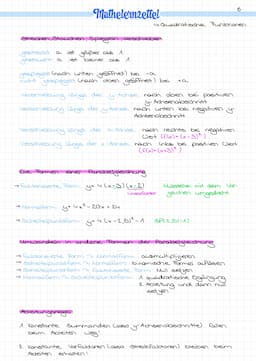 6
Mathelernzettel
→ Quadratische Funktionen
Strecken, Stauchen, Spiegeln, verschieben
gestreckt: a ist größer als 1
gestaucht: a ist kleiner als 1
gespiegelt (nach unten geöffnet) bei -a
nicht gespiegelt (nach oben geöffnet) bei +a
Verschiebung längs der y-Achse: nach oben bei positiven
y-Achsenabschnitt
Verschiebung längs der y-Achse: nach unten bei negativen y-
Achsenabschnitt
Verschiebung längs der x-Achse: nach rechts bei negativen
Wert
Verschiebung längs der x-Achse: nach links bei positiven Wert
Die Formen einer Parabelgleichung
→ Faktorisierte Form:
Nullstellen mit dem Vor-
zeichen umgedreht
→ Normalform: y= 4x² - 20x + 24
→ Scheitelpunktform:
Umwandeln in andere Formen der Parabelgleichung
→ faktorisierte Form → Normalform: ausmultiplizieren
→ Scheitelpunktform → Normalform: binomische Formel auflösen
→ Scheitelpunktform → faktorisierte Form: Null setzen
→ Normalform → Scheitelpunktform: 1. quadratische Ergänzung
2. Ableitung und dann null
setzen
Ableitungsregeln
1. Konstante Summanden (also y-Achsenabschnitte) fallen
beim Ableiten weg!
2. Konstante Vorfaktoren (also Streckfaktoren) bleiben beim
Ableiten erhalten!